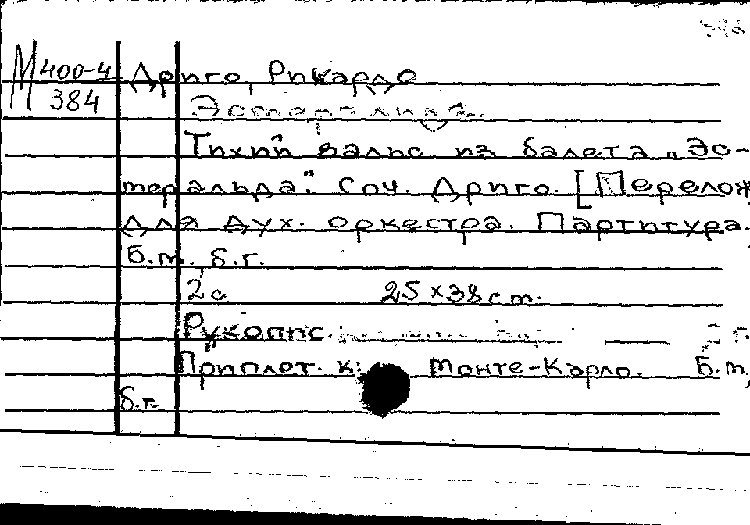 М 400-4 Дриго, Рикардо
384 Эсмеральда.
Тихий вальс из балета „Эс-
меральда". Соч. Дриго. [Перелож
для дух. оркестра. Партитура.
Б.м. б.г.
2с 25×38см.
Рукопис.
Приплет. к: Монте-Карло. Б.м,
б.г.